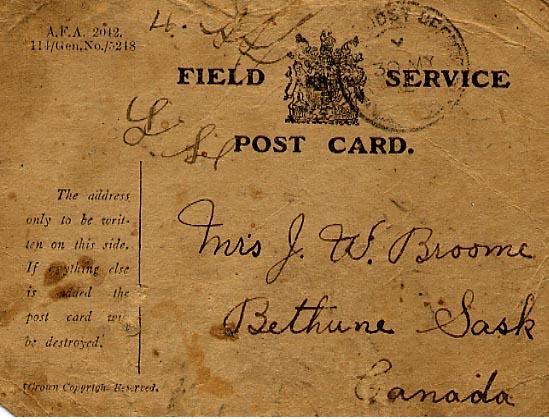 A.F.A. 2042.
114/Gen.No./5248
FIELD SERVICE
POST CARD.
The address
only to be writ-
ten on this side.
If anything else
is added the
post card will
be destroyed.
Crown Copyright Reserved.
30 MY
Mrs J. W. Broome
Bethune Sask
Canada